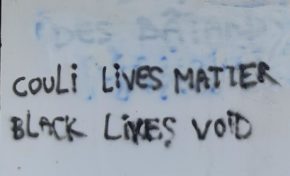 COULi LiVES MATTER
BLACK LIVES VOiD